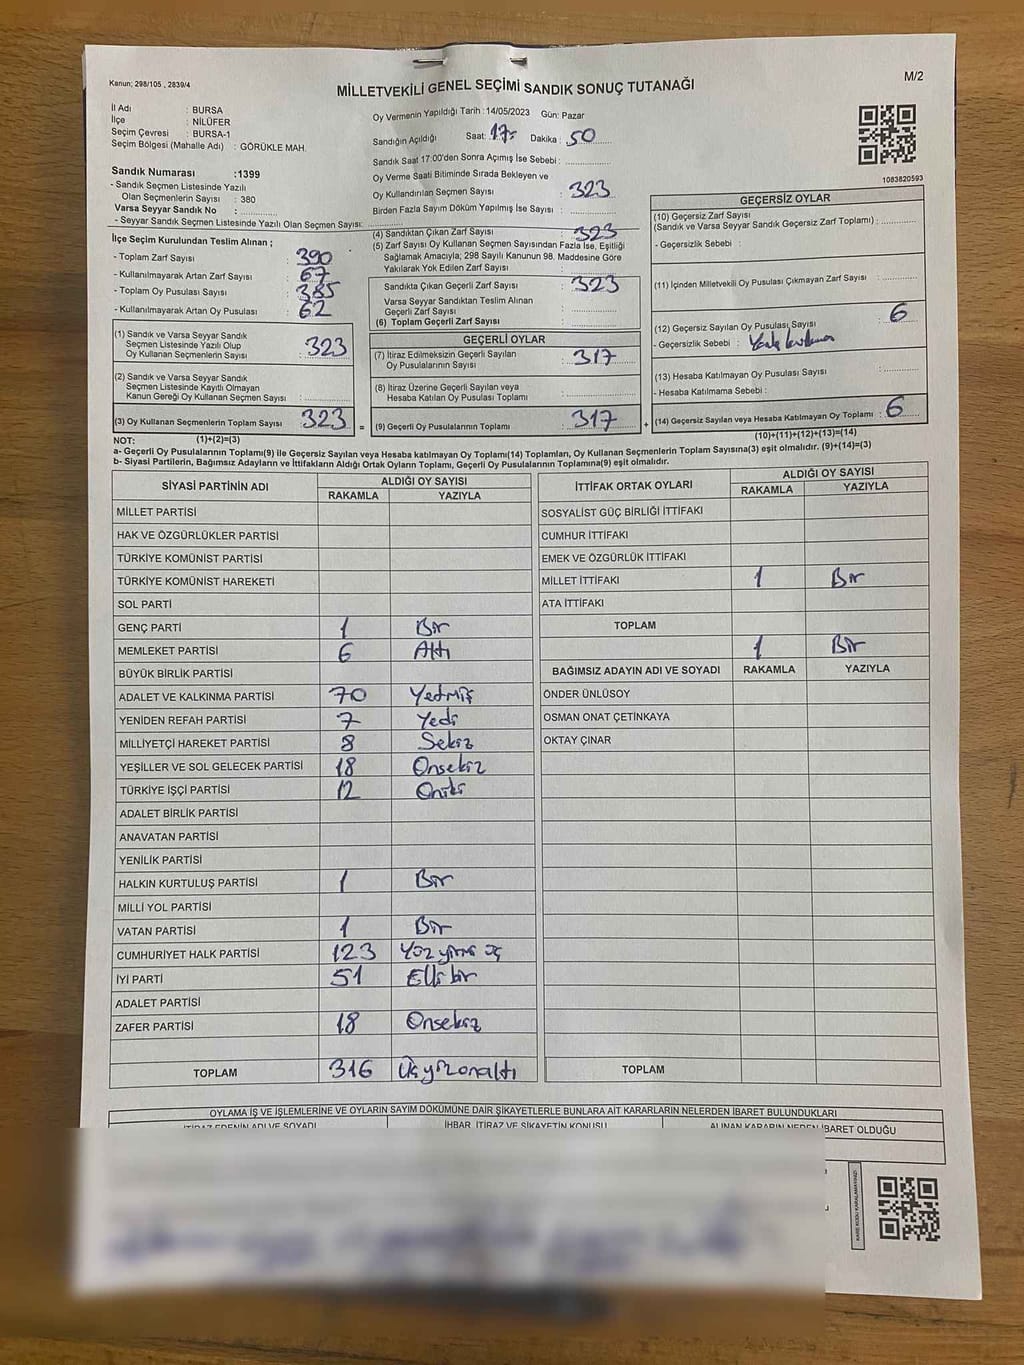 Kanun; 298/105 , 2839/4
MİLLETVEKİLİ GENEL SEÇİMİ SANDIK SONUÇ TUTANAĞI
M/2
İl Adı : BURSA
İlçe : NİLÜFER
Seçim Çevresi : BURSA-1
Seçim Bölgesi (Mahalle Adı) : GÖRÜKLE MAH.
Sandık Numarası :1399
- Sandık Seçmen Listesinde Yazılı
Olan Seçmenlerin Sayısı : 380
Varsa Seyyar Sandık No :
- Seyyar Sandık Seçmen Listesinde Yazılı Olan Seçmen Sayısı:
Oy Vermenin Yapıldığı Tarih : 14/05/2023 Gün: Pazar
Sandığın Açıldığı Saat: 17 Dakika : 50
Sandık Saat 17:00'den Sonra Açımış İse Sebebi :
Oy Verme Saati Bitiminde Sırada Bekleyen ve
Oy Kullandırılan Seçmen Sayısı : 323
Birden Fazla Sayım Döküm Yapılmış İse Sayısı :
1083820593
İlçe Seçim Kurulundan Teslim Alınan ;
- Toplam Zarf Sayısı : 390
- Kullanılmayarak Artan Zarf Sayısı : 67
- Toplam Oy Pusulası Sayısı : 385
- Kullanılmayarak Artan Oy Pusulası : 62
(1) Sandık ve Varsa Seyyar Sandık
Seçmen Listesinde Yazılı Olup
Oy Kullanan Seçmenlerin Sayısı : 323
(2) Sandık ve Varsa Seyyar Sandık
Seçmen Listesinde Kayıtlı Olmayan
Kanun Gereği Oy Kullanan Seçmen Sayısı :
(3) Oy Kullanan Seçmenlerin Toplam Sayısı : 323 =
(4) Sandıktan Çıkan Zarf Sayısı : 323
(5) Zarf Sayısı Oy Kullanan Seçmen Sayısından Fazla İse, Eşitliği
Sağlamak Amacıyla; 298 Sayılı Kanunun 98. Maddesine Göre
Yakılarak Yok Edilen Zarf Sayısı :
Sandıkta Çıkan Geçerli Zarf Sayısı : 323
Varsa Seyyar Sandıktan Teslim Alınan
Geçerli Zarf Sayısı :
(6) Toplam Geçerli Zarf Sayısı :
GEÇERLİ OYLAR
(7) İtiraz Edilmeksizin Geçerli Sayılan
Oy Pusulalarının Sayısı : 317
(8) İtiraz Üzerine Geçerli Sayılan veya
Hesaba Katılan Oy Pusulası Toplamı :
(9) Geçerli Oy Pusulalarının Toplamı : 317 +
GEÇERSİZ OYLAR
(10) Geçersiz Zarf Sayısı
(Sandık ve Varsa Seyyar Sandık Geçersiz Zarf Toplamı) :
- Geçersizlik Sebebi :
(11) İçinden Milletvekili Oy Pusulası Çıkmayan Zarf Sayısı :
(12) Geçersiz Sayılan Oy Pusulası Sayısı : 6
- Geçersizlik Sebebi :
(13) Hesaba Katılmayan Oy Pusulası Sayısı :
- Hesaba Katılmama Sebebi :
(14) Geçersiz Sayılan veya Hesaba Katılmayan Oy Toplamı : 6
NOT: (1)+(2)=(3) (10)+(11)+(12)+(13)=(14)
a- Geçerli Oy Pusulalarının Toplamı(9) ile Geçersiz Sayılan veya Hesaba katılmayan Oy Toplamı(14) Toplamları, Oy Kullanan Seçmenlerin Toplam Sayısına(3) eşit olmalıdır. (9)+(14)=(3)
b- Siyasi Partilerin, Bağımsız Adayların ve İttifakların Aldığı Ortak Oyların Toplamı, Geçerli Oy Pusulalarının Toplamına(9) eşit olmalıdır.
SİYASİ PARTİNİN ADI ALDIĞI OY SAYISI
RAKAMLA YAZIYLA
MİLLET PARTİSİ
HAK VE ÖZGÜRLÜKLER PARTİSİ
TÜRKİYE KOMÜNİST PARTİSİ
TÜRKİYE KOMÜNİST HAREKETİ
SOL PARTİ
GENÇ PARTİ 1 Bir
MEMLEKET PARTİSİ 6 Altı
BÜYÜK BİRLİK PARTİSİ
ADALET VE KALKINMA PARTİSİ 70 Yetmiş
YENİDEN REFAH PARTİSİ 7 Yedi
MİLLİYETÇİ HAREKET PARTİSİ 8 Sekiz
YEŞİLLER VE SOL GELECEK PARTİSİ 18 Onsekiz
TÜRKİYE İŞÇİ PARTİSİ 12 Oniki
ADALET BİRLİK PARTİSİ
ANAVATAN PARTİSİ
YENİLİK PARTİSİ
HALKIN KURTULUŞ PARTİSİ 1 Bir
MİLLİ YOL PARTİSİ
VATAN PARTİSİ 1 Bir
CUMHURİYET HALK PARTİSİ 123 Yüz yirmi üç
İYİ PARTİ 51 Elli bir
ADALET PARTİSİ
ZAFER PARTİSİ 18 Onsekiz
TOPLAM 316 Üçyüzonaltı
İTTİFAK ORTAK OYLARI ALDIĞI OY SAYISI
RAKAMLA YAZIYLA
SOSYALIST GÜÇ BİRLİĞİ İTTİFAKI
CUMHUR İTTİFAKI
EMEK VE ÖZGÜRLÜK İTTİFAKI
MİLLET İTTİFAKI 1 Bir
ATA İTTİFAKI
TOPLAM 1 Bir
BAĞIMSIZ ADAYIN ADI VE SOYADI RAKAMLA YAZIYLA
ÖNDER ÜNLÜSOY
OSMAN ONAT ÇETİNKAYA
OKTAY ÇINAR
TOPLAM
OYLAMA İŞ VE İŞLEMLERİNE VE OYLARIN SAYIM DÖKÜMÜNE DAİR ŞİKAYETLERLE BUNLARA AİT KARARLARIN NELERDEN İBARET BULUNDUKLARI
İTİRAZ EDENİN ADI VE SOYADI İHBAR, İTİRAZ VE ŞİKAYETİN KONUSU ALINAN KARARIN NEDEN İBARET OLDUĞU
KARE KODU KARALAMAYINIZ!